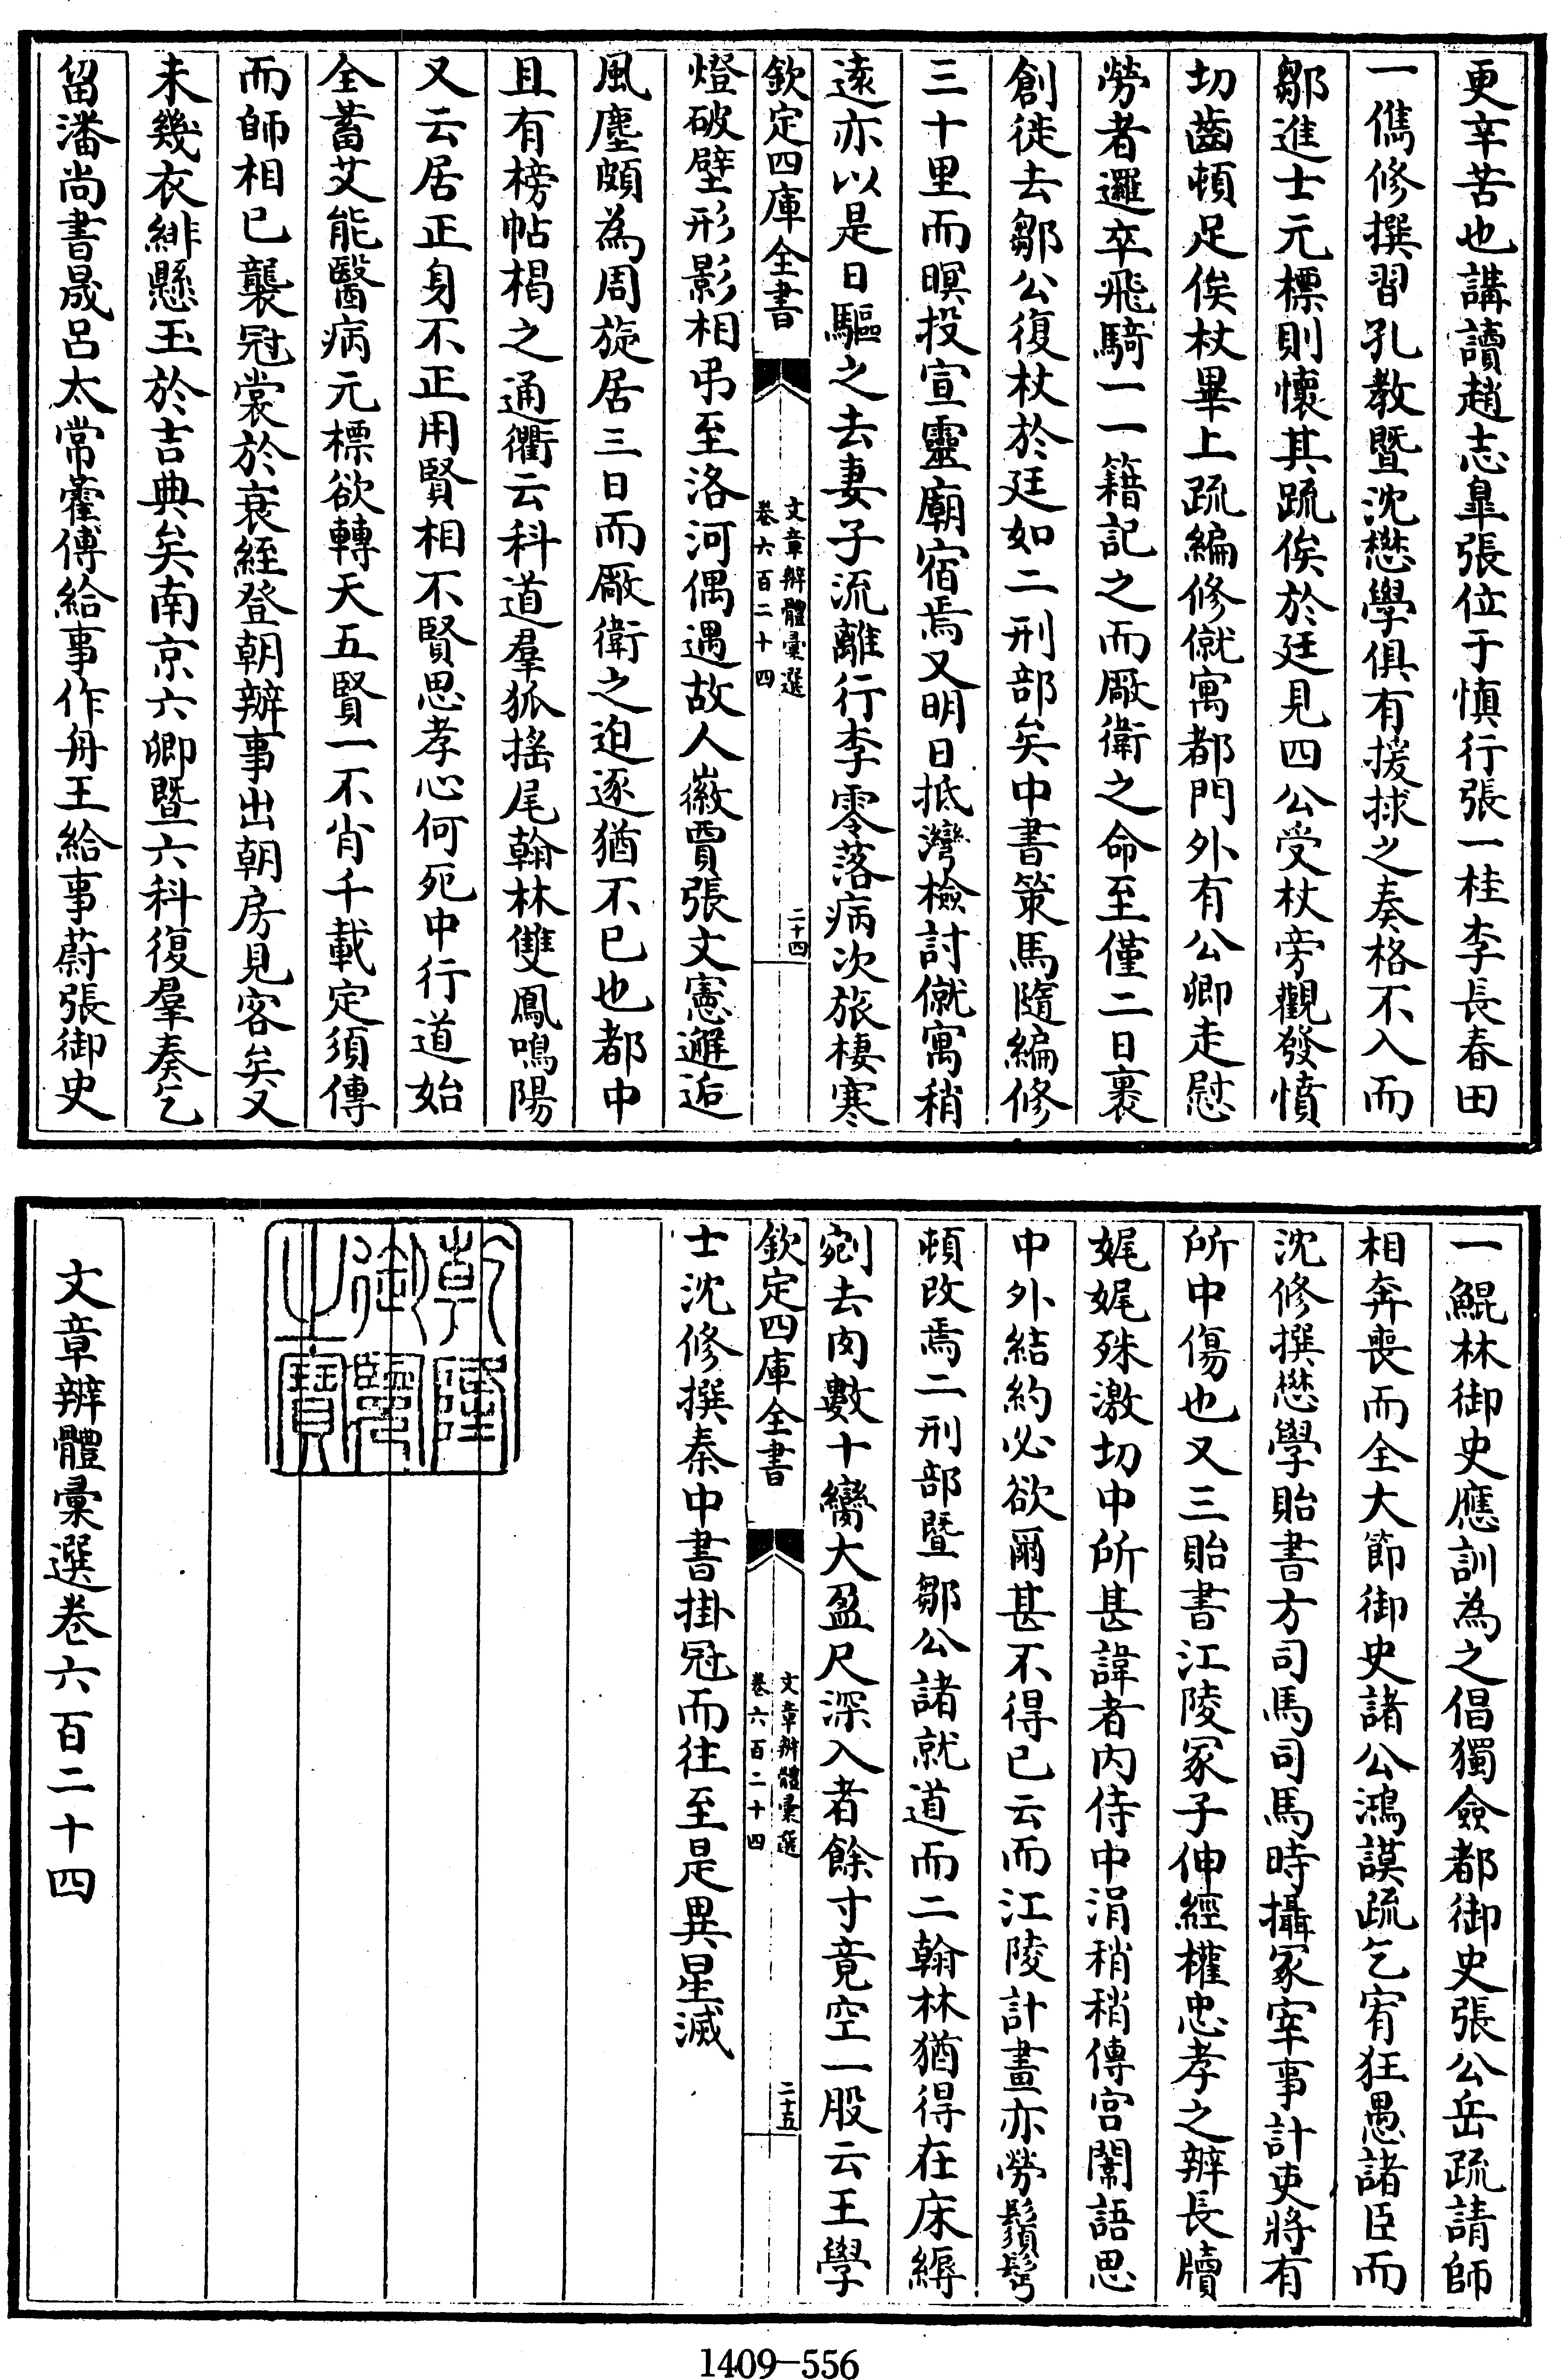 更辛苦也講讀趙志臯張位于慎行張一桂李長春田
一儁修撰習孔教暨沈懋學俱有援捄之奏格不入而
鄒進士元標則懷其疏俟於廷見四公受杖旁觀發憤
切齒頓足俟杖畢上疏編修僦寓都門外有公卿走慰
勞者邏卒飛騎一一籍記之而厰衛之命至僅二日裹
創徙去鄒公復杖於廷如二刑部矣中書策馬隨編修
三十里而暝投宣靈廟宿焉又明日抵灣檢討僦寓稍
逺亦以是日驅之去妻子流離行李零落病次旅棲寒
欽定四庫全書
文章辨體彙選
卷六百二十四
二十四
燈破壁形影相弔至洛河偶遇故人徽賈張文憲邂逅
風塵頗為周旋居三日而厰衛之迫逐猶不已也都中
且有榜帖榻之通衢云科道羣狐揺尾翰林雙鳳鳴陽
又云居正身不正用賢相不賢思孝心何死中行道始
全蓄艾能醫病元標欲轉天五賢一不肖千載定須傳
而師相已襲冠裳於衰絰登朝辦事出朝房見客矣又
未幾衣緋懸玉於吉典矣南京六卿暨六科復羣奏乞
留潘尚書晟呂太常霍傅給事作舟王給事蔚張御史
一鯤林御史應訓為之倡獨僉都御史張公岳疏請師
相奔喪而全大節御史諸公鴻謨疏乞宥狂愚諸臣而
沈修撰懋學貽書方司馬司馬時攝冢宰事計吏將有
所中傷也又三貽書江陵冢子伸經權忠孝之辨長牘
娓娓殊激切中所甚諱者内侍中涓稍稍傳宮闈語思
中外結約必欲爾甚不得已云而江陵計畫亦勞鬚髩
頓改焉二刑部暨鄒公諸就道而二翰林猶得在床縟
剜去肉數十臠大盈尺深入者餘寸竟空一股云王學
欽定四庫全書
文章辨體彙選
卷六百二十四
二十五
士沈修撰秦中書掛冠而往至是異星滅
乾隆御覽之寶
文章辨體彙選卷六百二十四
1409—556